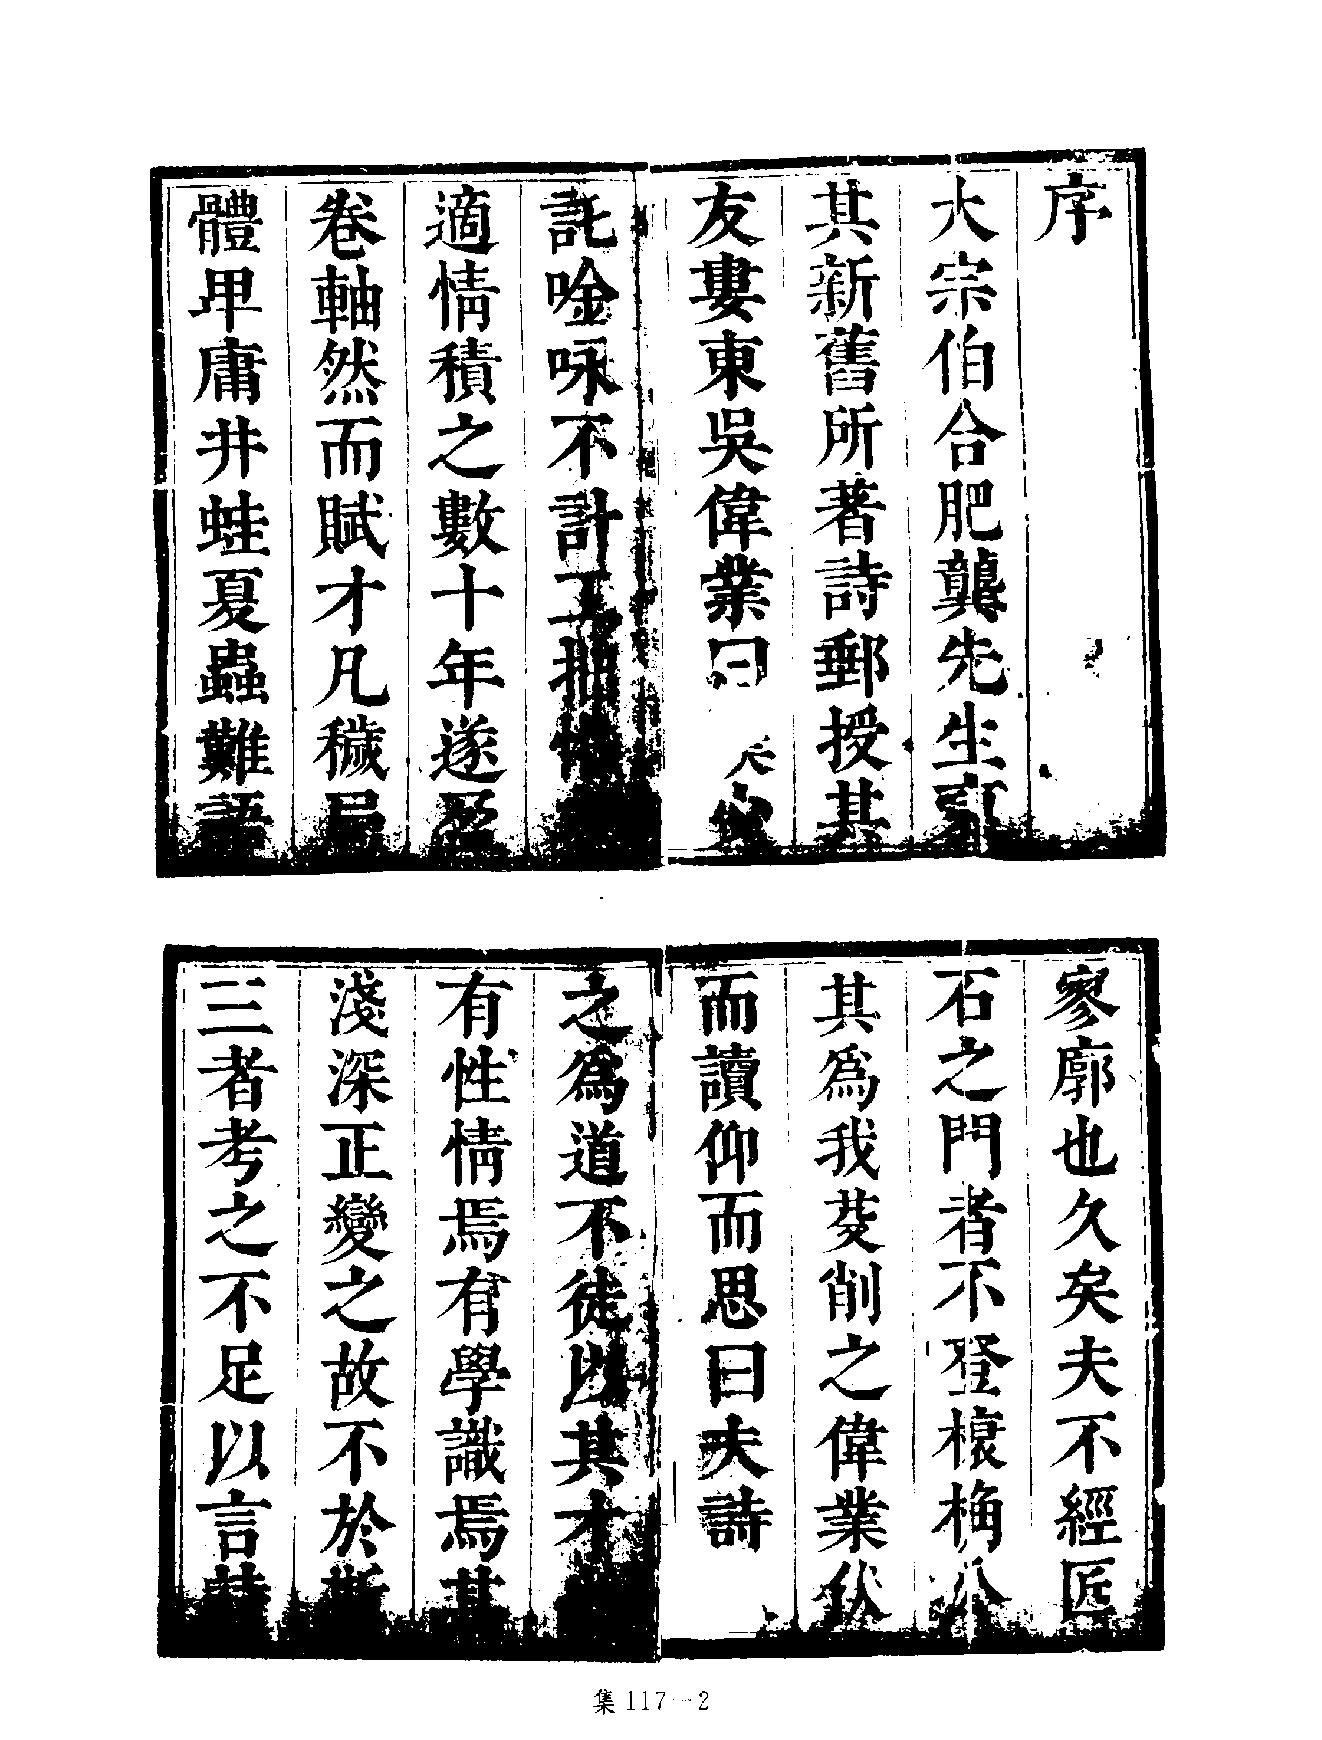 序
大宗伯合肥龔先生裒
其新舊所著詩郵授其
友婁東吳偉業曰
託唫咏不計工拙惟
適情積之數十年遂盈
卷軸然而賦才凡穢局
體甲庸井蛙夏蟲難語
寥廓也久矣夫不經匠
石之門者不登榱桷公
其為我芟削之偉業伏
而讀仰而思曰夫詩
之為道不徒以其才
有性情焉有學識焉其
淺深正變之故不於斯
三者考之不足以言詩
集 117－2